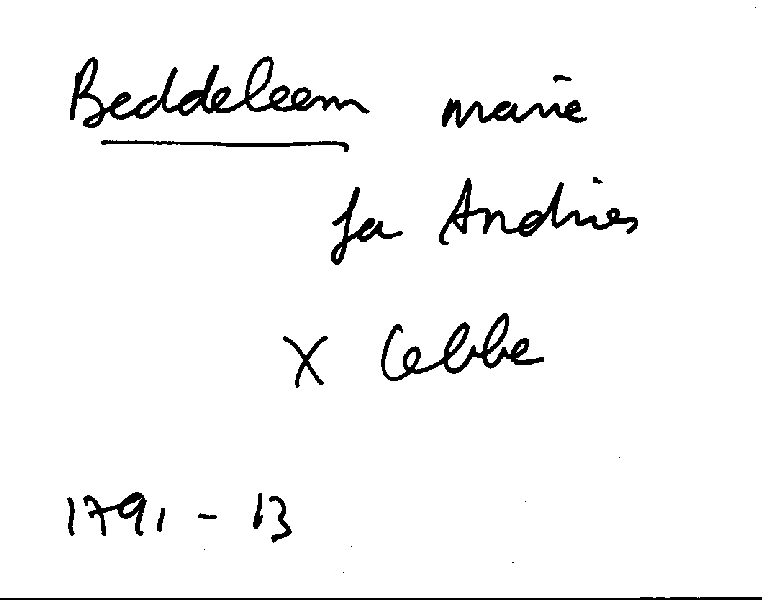 Beddeleem marie
fa Andries
X Cebbe
1791 - 13